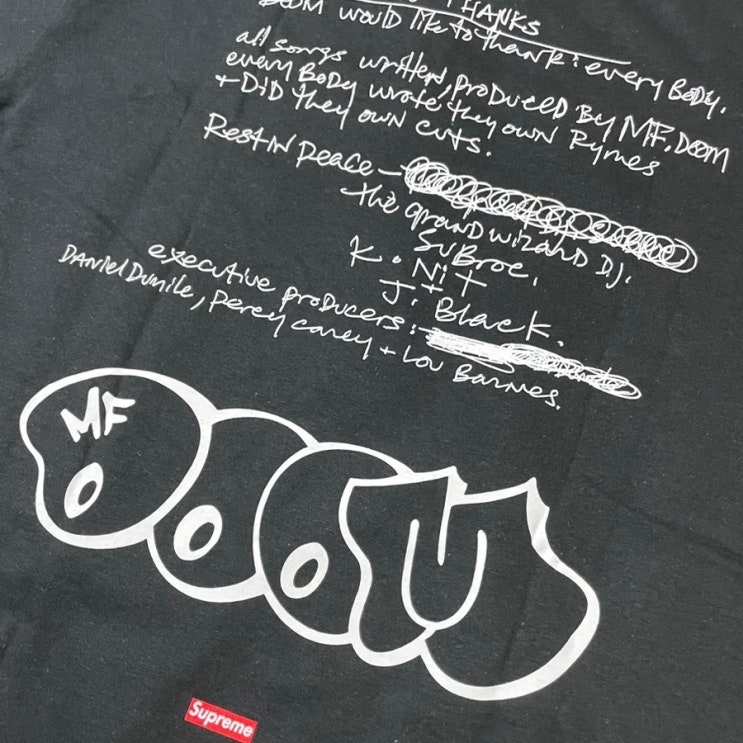 THANKS
DOOM would like to thank: every BoDy.
all songs written, produced By MF. Doom
every BoDy wrote they own Rymes
+ DiD they own cuts.
Rest iN peace -
the grand wizard D.J.
SuBroc.
K. Nit
+
J. Black.
executive producers:
Daniel Dumile, percy carey + Lou Barnes.
MF
DOOM
Supreme